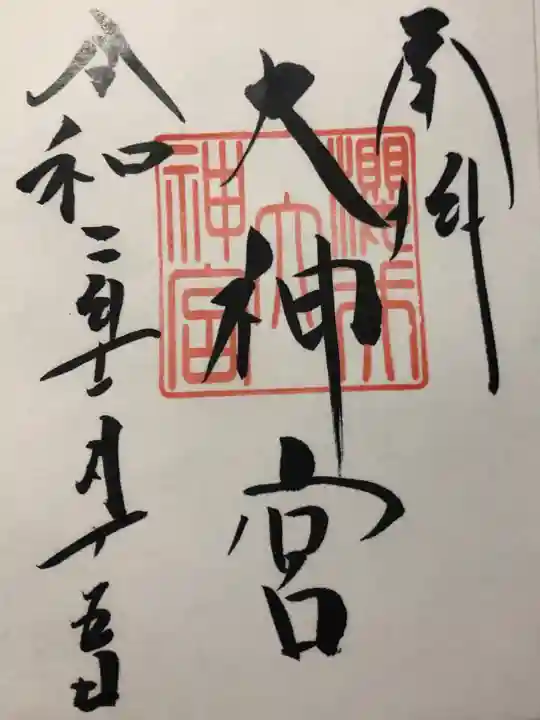 奉拝
大神宮
令和二年十一月十五日
大
神宮